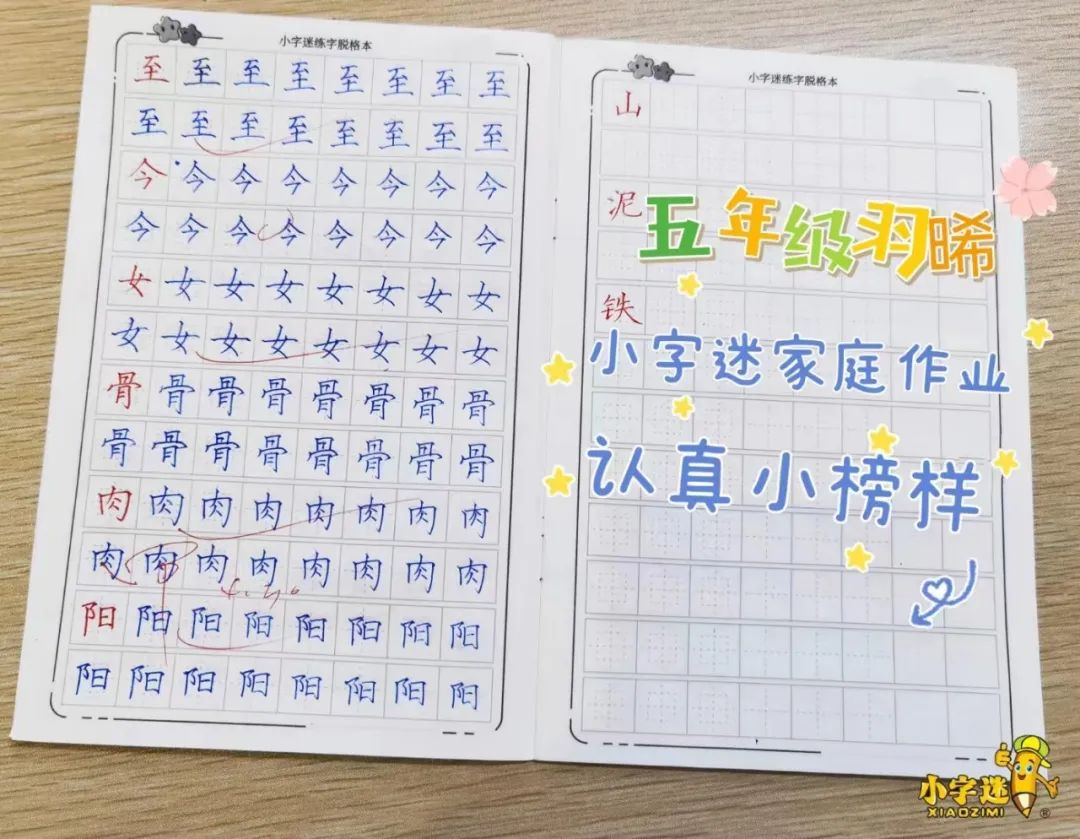 小字迷练字脱格本
至至至至至至至至
至至至至至至至至
今今今今今今今今
今今今今今今今今
女女女女女女女女
女女女女女女女女
骨骨骨骨骨骨骨骨
骨骨骨骨骨骨骨骨
肉肉肉肉肉肉肉肉
肉肉肉肉肉肉肉肉
阳阳阳阳阳阳阳阳
阳阳阳阳阳阳阳阳
小字迷练字脱格本
山
泥
五年级羽晞
铁
小字迷家庭作业
认真小榜样
小字迷
XIAOZIMI
®